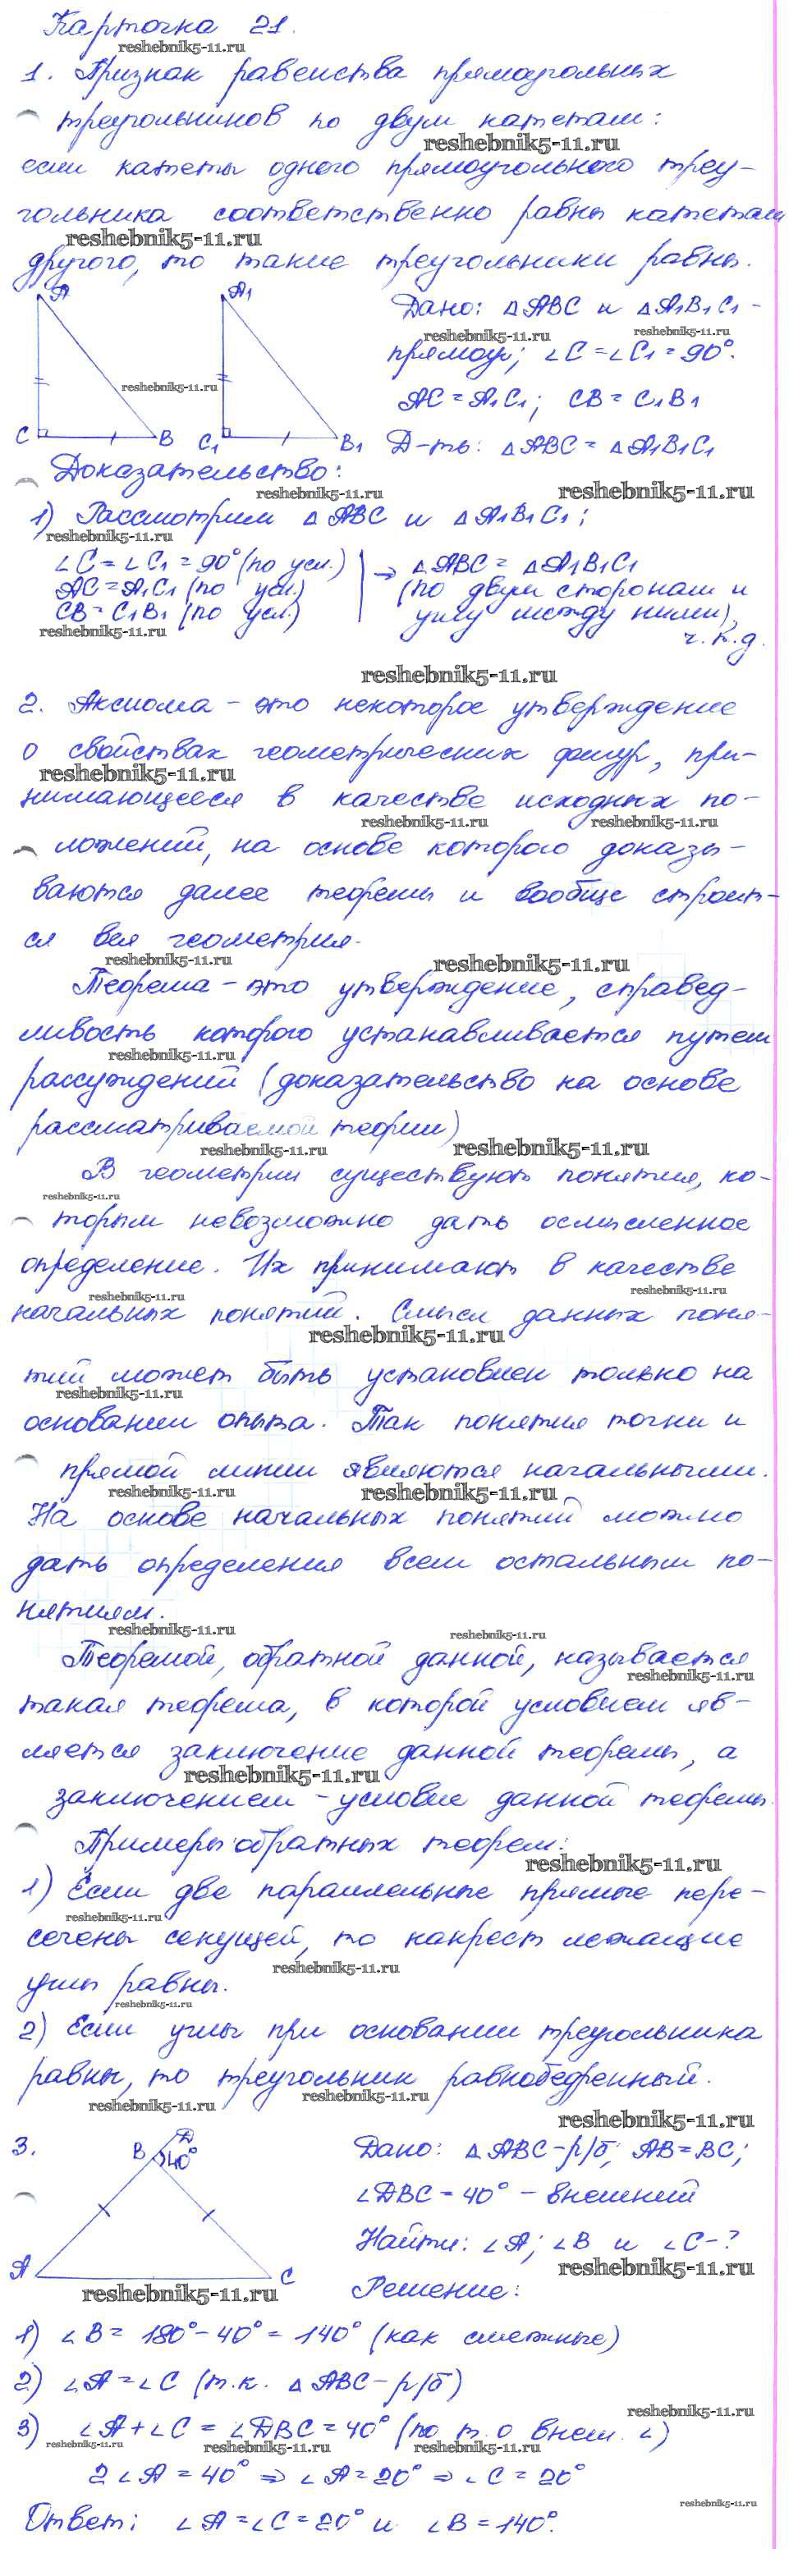 Карточка 21.
reshebnik5-11.ru
1. Признак равенства прямоугольных
треугольников по двум катетам:
reshebnik5-11.ru
если катеты одного прямоугольного треу-
гольника соответственно равны катетам
reshebnik5-11.ru
другого, то такие треугольники равны.
A A₁ Дано: △ABC и △A₁B₁C₁ -
reshebnik5-11.ru reshebnik5-11.ru
прямоуг; ∠C = ∠C₁ = 90°.
reshebnik5-11.ru
AC = A₁C₁; CB = C₁B₁
C B C₁ B₁ Д-ть: △ABC = △A₁B₁C₁
Доказательство:
reshebnik5-11.ru reshebnik5-11.ru
1) Рассмотрим △ABC и △A₁B₁C₁;
reshebnik5-11.ru
∠C = ∠C₁ = 90° (по усл.) | → △ABC = △A₁B₁C₁
AC = A₁C₁ (по усл.) (по двум сторонам и
CB = C₁B₁ (по усл.) углу между ними),
reshebnik5-11.ru ч.т.д.
reshebnik5-11.ru
2. Аксиома - это некоторое утверждение
о свойствах геометрических фигур, при-
reshebnik5-11.ru
нимающееся в качестве исходных по-
reshebnik5-11.ru reshebnik5-11.ru
ложений, на основе которого доказы-
ваются далее теоремы и вообще строит-
ся вся геометрия.
reshebnik5-11.ru reshebnik5-11.ru
Теорема - это утверждение, справед-
ливость которого устанавливается путем
reshebnik5-11.ru
рассуждений (доказательство на основе
рассматриваемой теории)
reshebnik5-11.ru reshebnik5-11.ru
В геометрии существуют понятия, ко-
reshebnik5-11.ru
торым невозможно дать осмысленное
определение. Их принимают в качестве
reshebnik5-11.ru reshebnik5-11.ru
начальных понятий. Смысл данных поня-
reshebnik5-11.ru
тий может быть установлен только на
reshebnik5-11.ru
основании опыта. Так понятия точки и
прямой линии являются начальными.
reshebnik5-11.ru reshebnik5-11.ru
На основе начальных понятий можно
дать определения всем остальным по-
нятиям.
reshebnik5-11.ru reshebnik5-11.ru
Теоремой, обратной данной, называется
reshebnik5-11.ru
такая теорема, в которой условием яв-
ляется заключение данной теоремы, а
reshebnik5-11.ru
заключением - условие данной теоремы.
Примеры обратных теорем:
reshebnik5-11.ru
1) Если две параллельные прямые пере-
reshebnik5-11.ru
сечены секущей, то накрест лежащие
reshebnik5-11.ru
углы равны.
reshebnik5-11.ru
2) Если углы при основании треугольника
равны, то треугольник равнобедренный.
reshebnik5-11.ru reshebnik5-11.ru
reshebnik5-11.ru
3. B D 40° Дано: △ABC - р/б; AB = BC;
∠DBC = 40° - внешний
Найти: ∠A; ∠B и ∠C - ?
A C reshebnik5-11.ru
reshebnik5-11.ru Решение:
1) ∠B = 180° - 40° = 140° (как смежные)
2) ∠A = ∠C (т.к. △ABC - р/б)
reshebnik5-11.ru
3) ∠A + ∠C = ∠DBC = 40° (по т. о внеш. ∠)
reshebnik5-11.ru reshebnik5-11.ru reshebnik5-11.ru
2∠A = 40° ⇒ ∠A = 20° ⇒ ∠C = 20°
reshebnik5-11.ru
Ответ: ∠A = ∠C = 20° и ∠B = 140°.